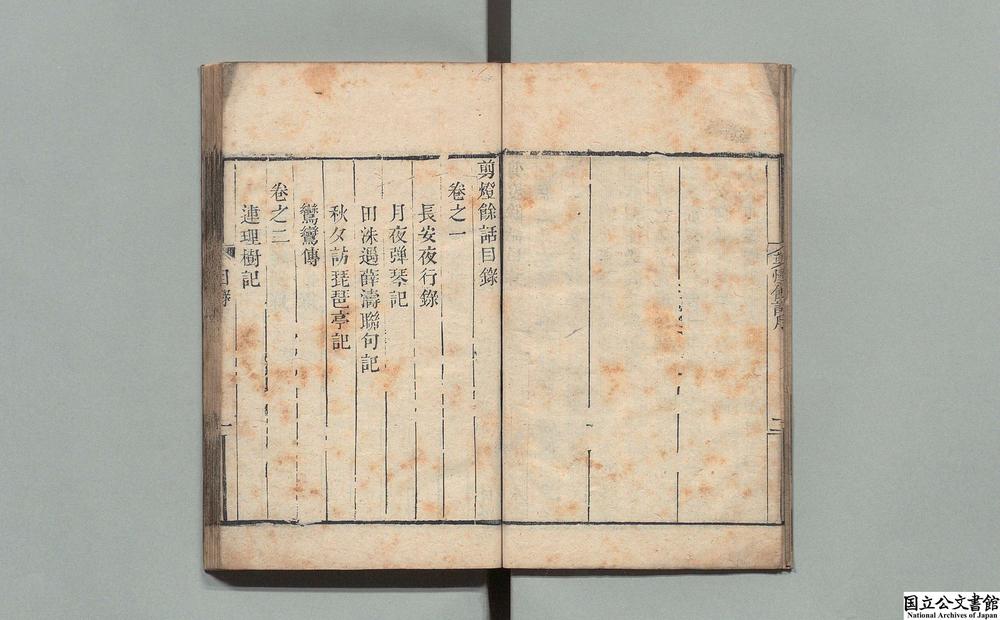 剪燈餘話目錄
卷之一
長安夜行錄
月夜弹琴記
田洙遇薛濤聯句記
秋夕訪琵琶亭記
鸞鸞傳
卷之二
連理樹記
目錄
一
二
国立公文書館
National Archives of Japan